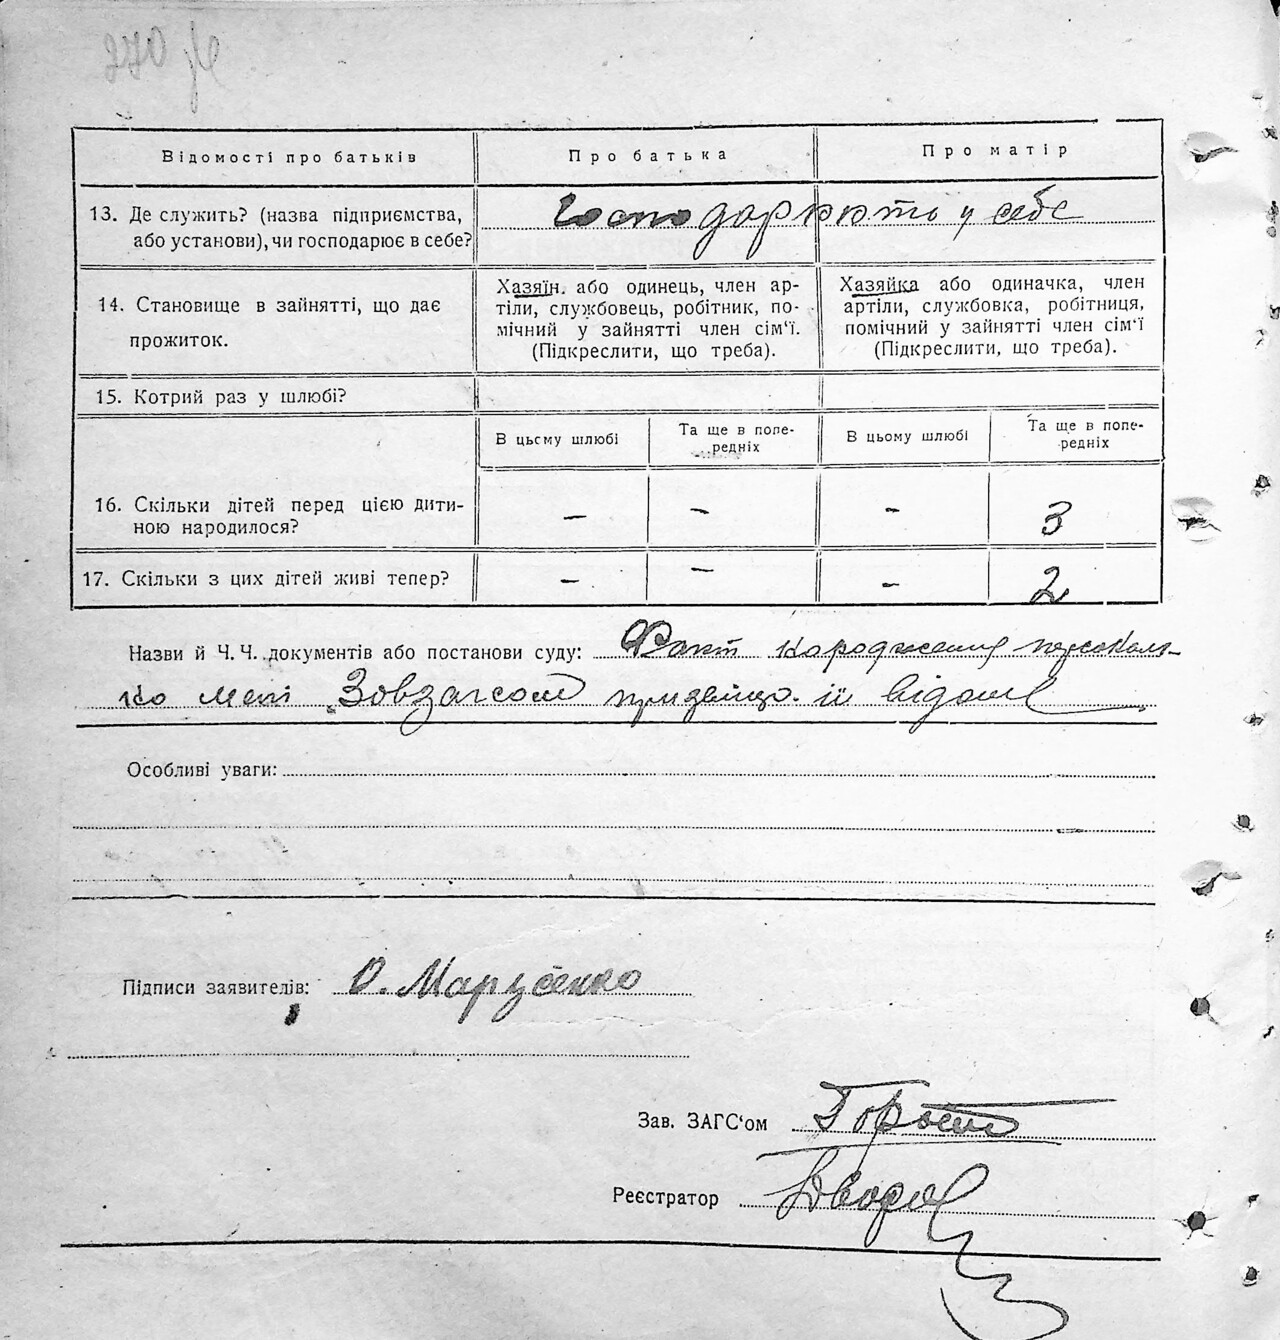 270
Відомості про батьків
Про батька
Про матір
13. Де служить? (назва підприємства,
або установи), чи господарює в себе?
Господарюють у себе
14. Становище в зайнятті, що дає
прожиток.
Хазяїн. або одинець, член ар-
тіли, службовець, робітник, по-
мічний у зайнятті член сім'ї.
(Підкреслити, що треба).
Хазяйка або одиначка, член
артіли, службовка, робітниця,
помічний у зайнятті член сім'ї
(Підкреслити, що треба).
15. Котрий раз у шлюбі?
В цьому шлюбі
Та ще в попе-
редніх
В цьому шлюбі
Та ще в попе-
редніх
16. Скільки дітей перед цією дити-
ною народилося?
–
–
–
3
17. Скільки з цих дітей живі тепер?
–
–
–
2
Назви й Ч. Ч. документів або постанови суду: Факт народження персональ-
но мені Зовзагсом прізвище й відоме
Особливі уваги:
Підписи заявителів: О. Марусенко
Зав. ЗАГС'ом
Реєстратор